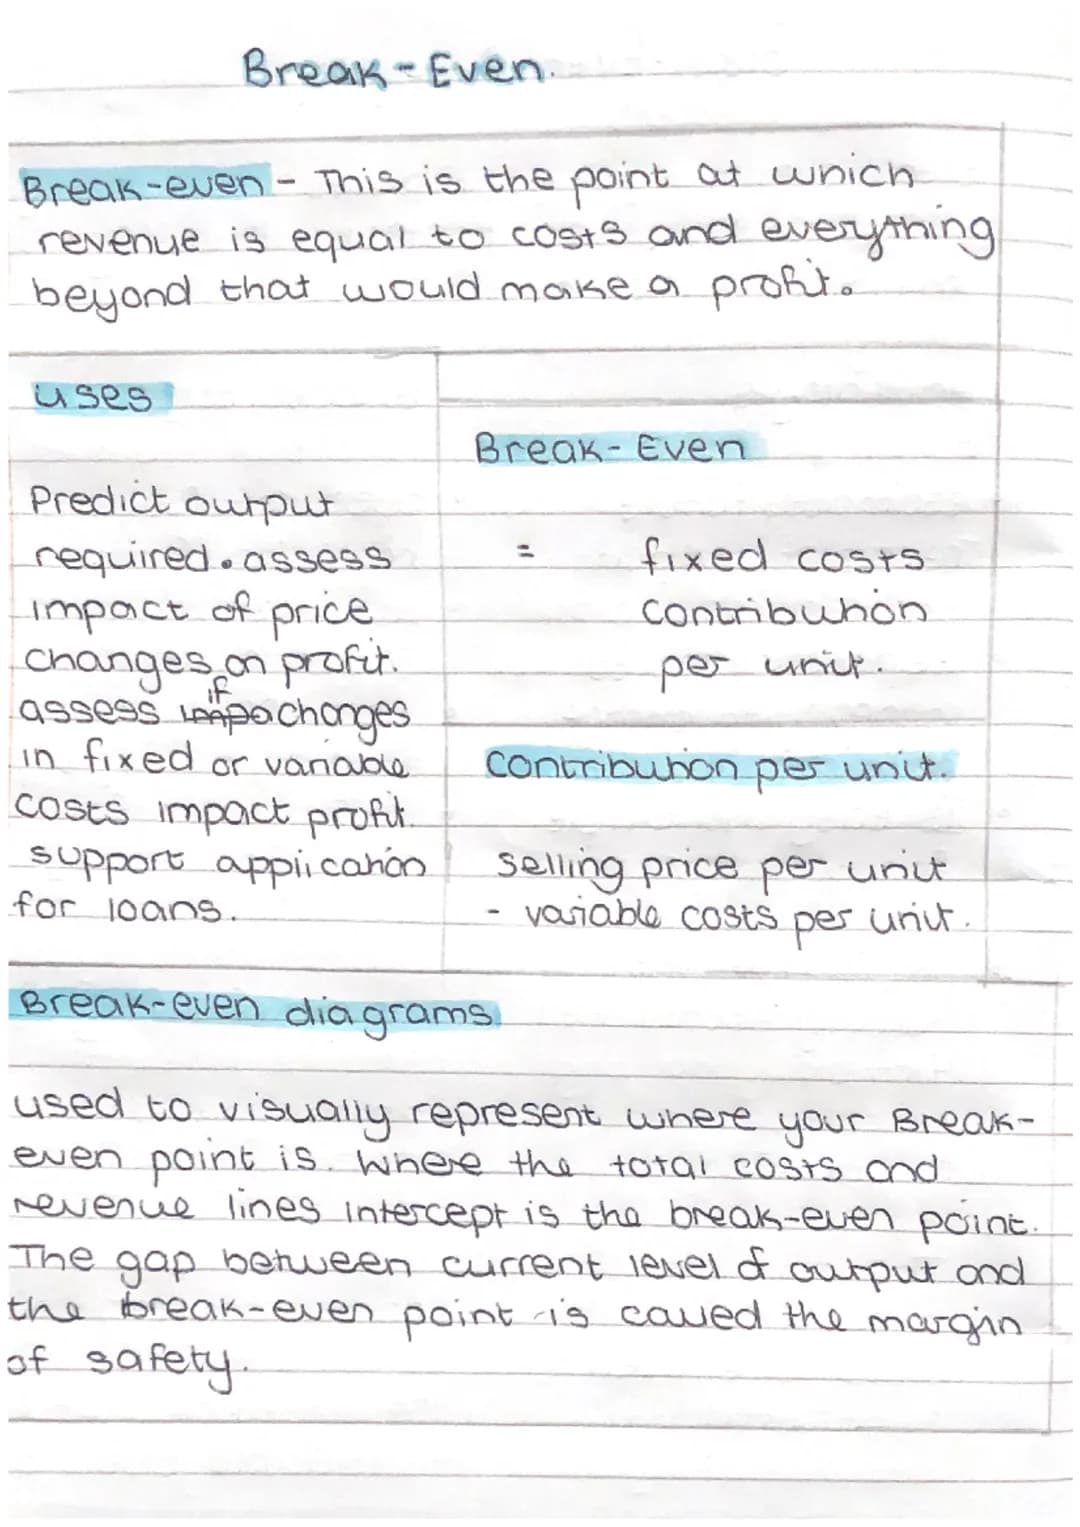 Break-Even.
Break-even - This is the point at which
revenue is equal to costs and everything
beyond that would make a profit.
uses
Predict output
required. assess
impact of price
changes on profit.
if
assess impa changes
in fixed or variable
costs impact profit.
support application
for loans.
Break-Even
= fixed costs
contribution
per unit.
contribution per unit.
selling price per unit
- variable costs per unit.
Break-even diagrams
used to visually represent where your Break-
even point is. Where the total costs and
revenue lines intercept is the break-even point.
The gap between current level of output and
the break-even point is called the margin
of safety.